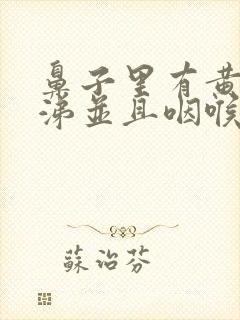 鼻子里有黄
涕並且咽喉
蘇治芬